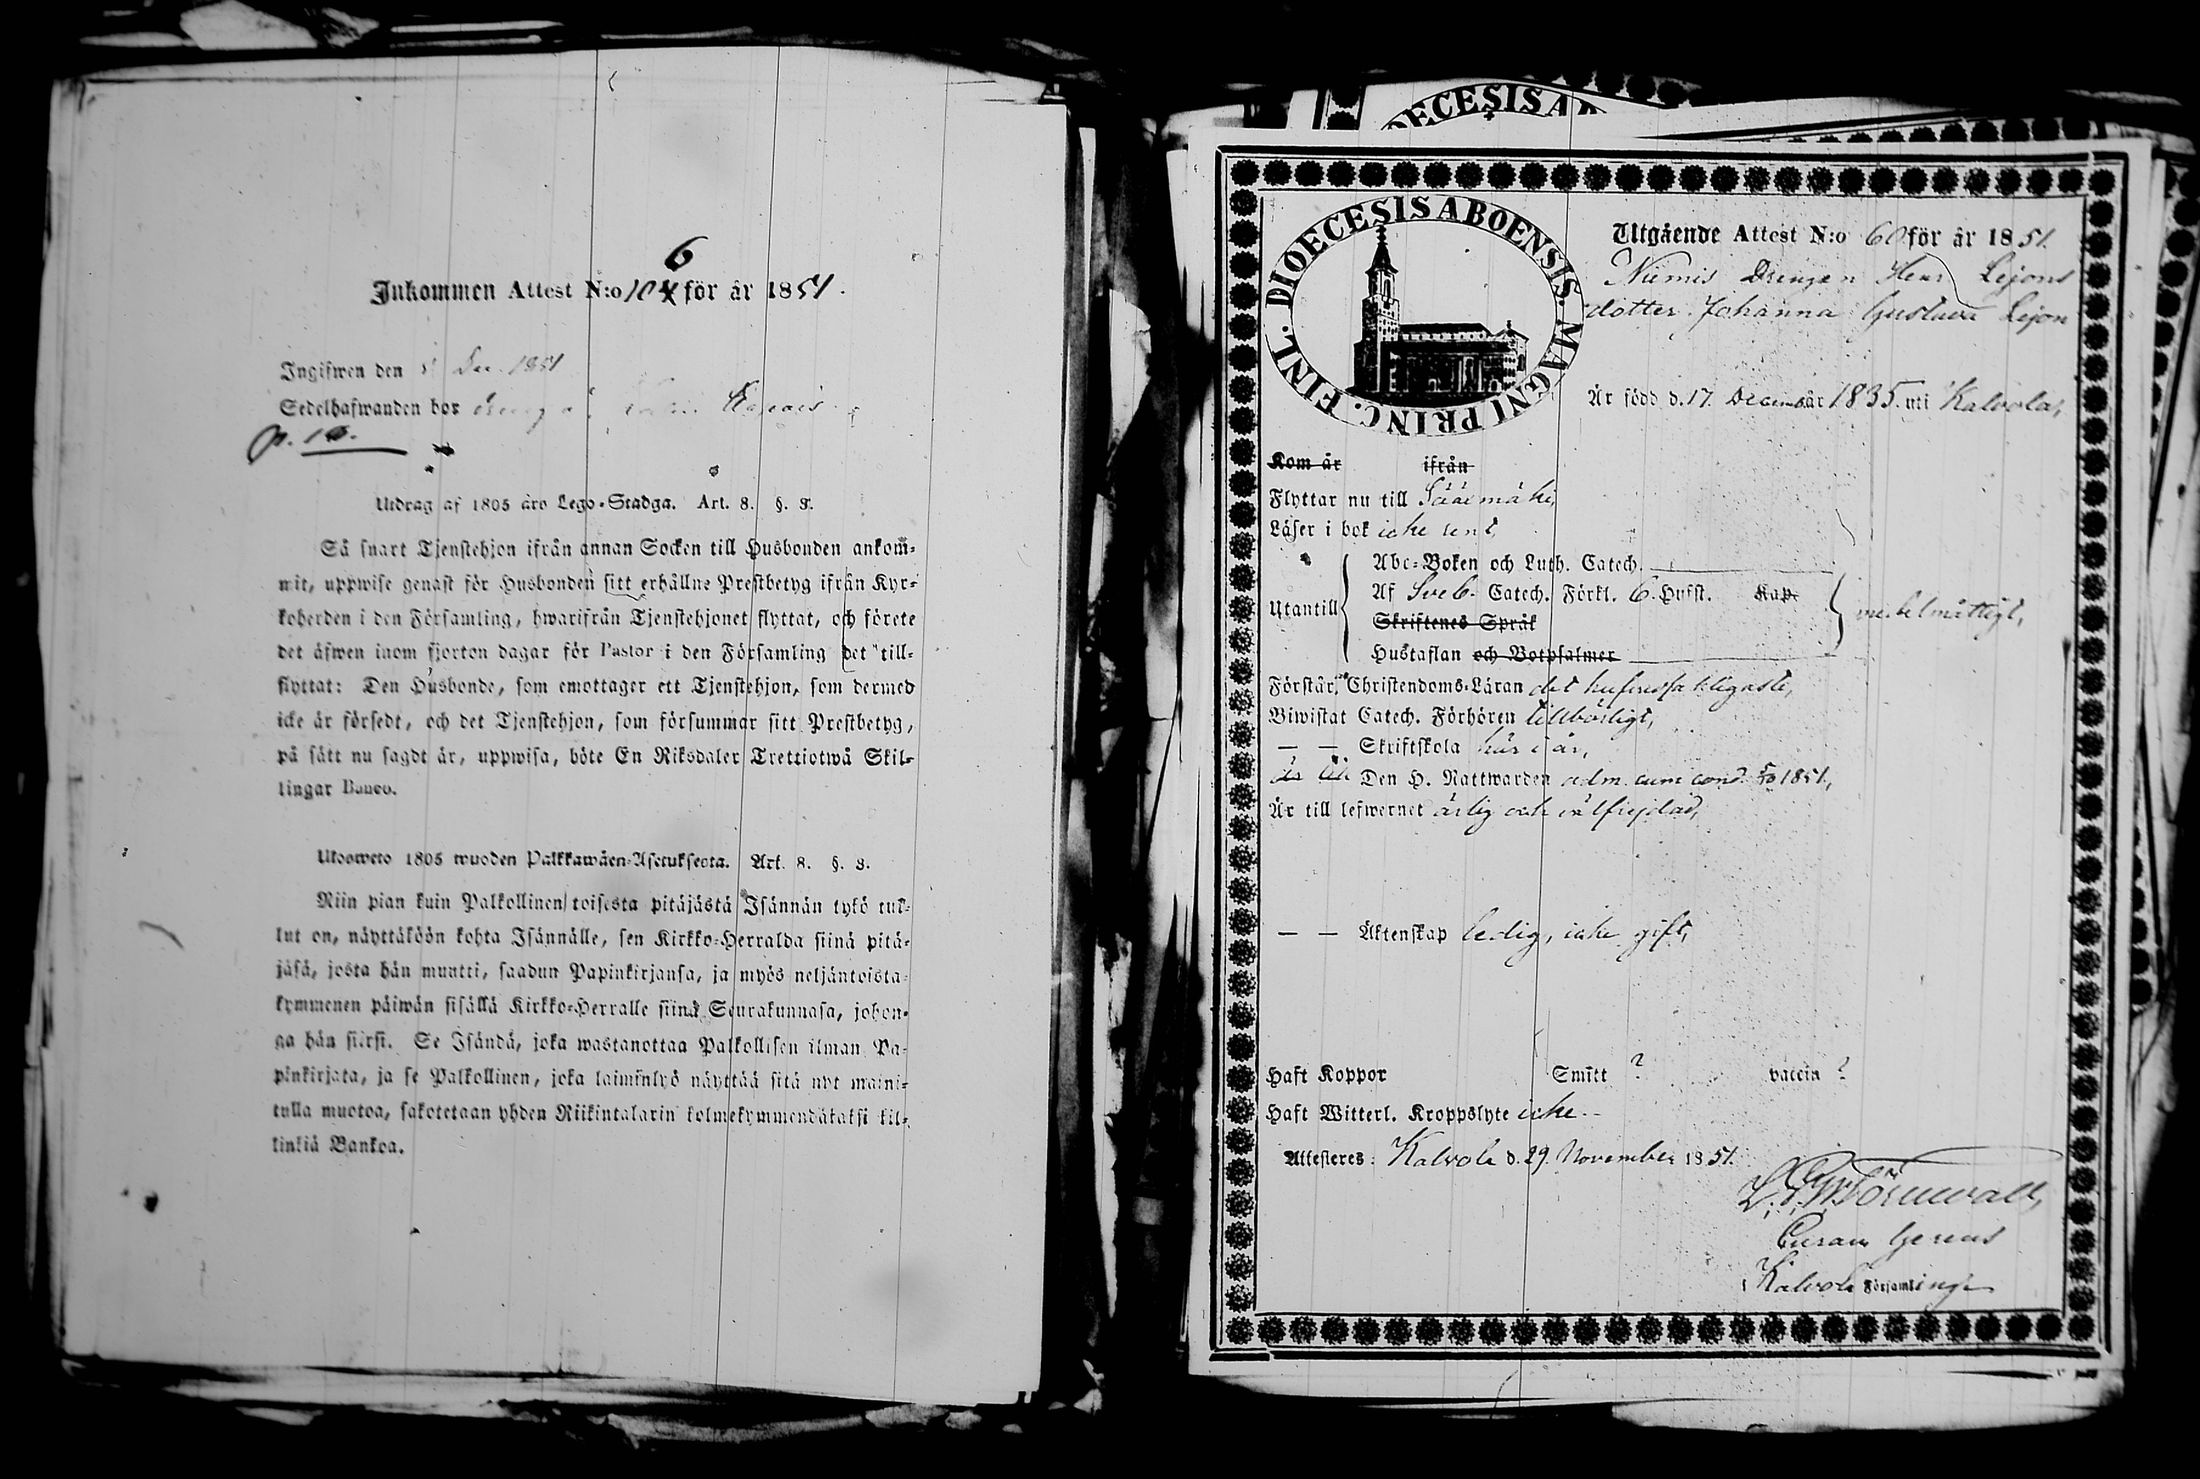 Inkommen Attest N:o 106 för år 1851.
Ingifwen den Dec. 1851
Sedelhafwanden bor
p. 10.
Utdrag af 1805 års Lego-Stadga. Art. 8. §. 3.
Så snart Tjenstehjon ifrån annan Socken till Husbonden ankom-
mit, uppwise genast för Husbonden sitt erhållne Prestbetyg ifrån Kyr-
koherden i den Församling, hwarifrån Tjenstehjonet flyttat, och förete
det äfwen inom fjorton dagar för Pastor i den Församling det till-
flyttat: Den Husbonde, som emottager ett Tjenstehjon, som dermed
icke är försedt, och det Tjenstehjon, som försummar sitt Prestbetyg,
på sätt nu sagdt är, uppwisa, böte En Riksdaler Trettiotwå Skil-
lingar Banco.
Ulosweto 1805 wuoden Palkkawäen-Asetuksesta. Art. 8. §. 3.
Niin pian kuin Palkollinen toisesta pitäjästä Isännän tykö tul-
lut on, näyttäköön kohta Isännälle, sen Kirkko-Herralda siinä pitä-
jäsä, josta hän muutti, saadun Papinkirjansa, ja myös neljäntoista-
kymmenen päiwän sisällä Kirkko-Herralle siinä Seurakunnasa, johon-
ga hän siirsi. Se Isändä, joka wastanottaa Palkollisen ilman Pa-
pinkirjata, ja se Palkollinen, joka laiminlyö näyttää sitä nyt maini-
tulla muotoa, sakotetaan yhden Riikintalarin kolmekymmendäkaksi kil-
linkiä Bankoa.
DIOECESIS A
DIOECESIS ABOENSIS. MAGNI PRINC. FINL.
Utgående Attest N:o 60 för år 1851.
Niemis Drengen Henr Lejons
dotter Johanna Gustava Lejon
Är född d. 17. December år 1835. uti Kalvola,
Kom år ifrån
Flyttar nu till Sääxmäki,
Läser i bok icke rent,
Abc-Boken och Luth. Catech.
Af Sveb. Catech. Förkl. 6. Hufst. Kap.
Utantill
medelmåttigt,
Skriftenes Språk
Hustaflan och Botpsalmer
Förstår Christendoms-Läran det hufvudsakligaste,
Biwistat Catech. Förhören tillbörligt,
— — Skriftskola här i år,
Den H. Nattwarden adm. cum cond. 1851,
Är till lefwernet ärlig och välfrejdad,
— — Äktenskap ledig, icke gift,
Haft Koppor Smitt ? vaccin ?
Haft Witterl. Kroppslyte icke.
Attesteres: Kalvola d. 29. November 1851.
Curam Gerens
i Kalvola Församling